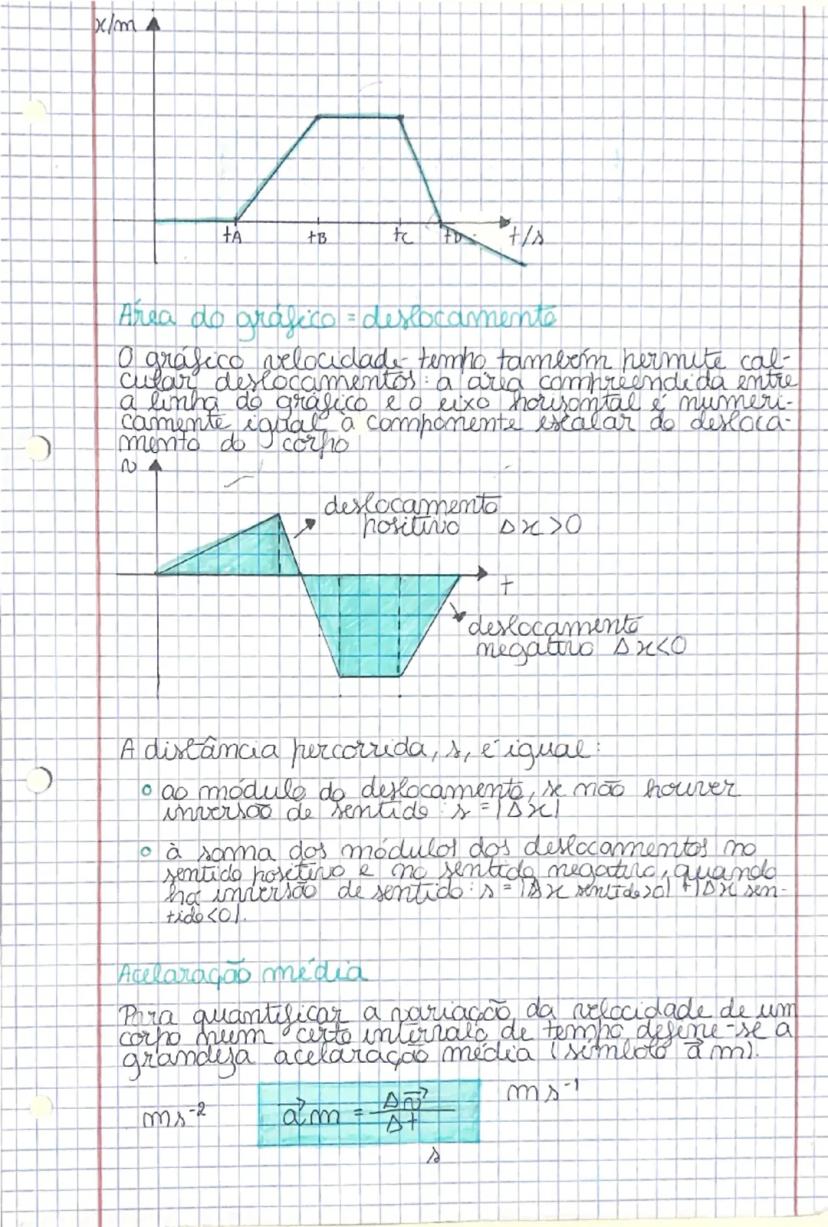 x/m
tA tB tC tD t/s
Área do gráfico = deslocamento
O gráfico velocidade-tempo também permite cal-
cular deslocamentos: a área compreendida entre
a linha do gráfico e o eixo horisontal é numeri-
camente igual à componente escalar do desloca-
mento do corpo
v
deslocamento
positivo Δx>0
t
deslocamento
negativo Δx<0
A distância percorrida, s, é igual:
ao módulo do deslocamento, se não houver
inversão de sentido: s = |Δx|
à soma dos módulos dos deslocamentos no
sentido positivo e no sentido negativo, quando
há inversão de sentido: s = |Δx sentido>0| + |Δx sen-
tido<0|.
Acelaração média
Para quantificar a variação da velocidade de um
corpo num certo intervalo de tempo define-se a
grandeza acelaração média (símbolo a⃗m).
ms⁻² a⃗m = Δv⃗/Δt ms⁻¹
s